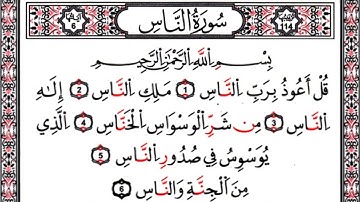 سُورَةُ النَّاسِ
آيَاتُهَا 6
114
بِسْمِ اللَّهِ الرَّحْمَٰنِ الرَّحِيمِ
قُلْ أَعُوذُ بِرَبِّ النَّاسِ 1 مَلِكِ النَّاسِ 2 إِلَٰهِ
النَّاسِ 3 مِن شَرِّ الْوَسْوَاسِ الْخَنَّاسِ 4 الَّذِي
يُوَسْوِسُ فِي صُدُورِ النَّاسِ 5
مِنَ الْجِنَّةِ وَالنَّاسِ 6